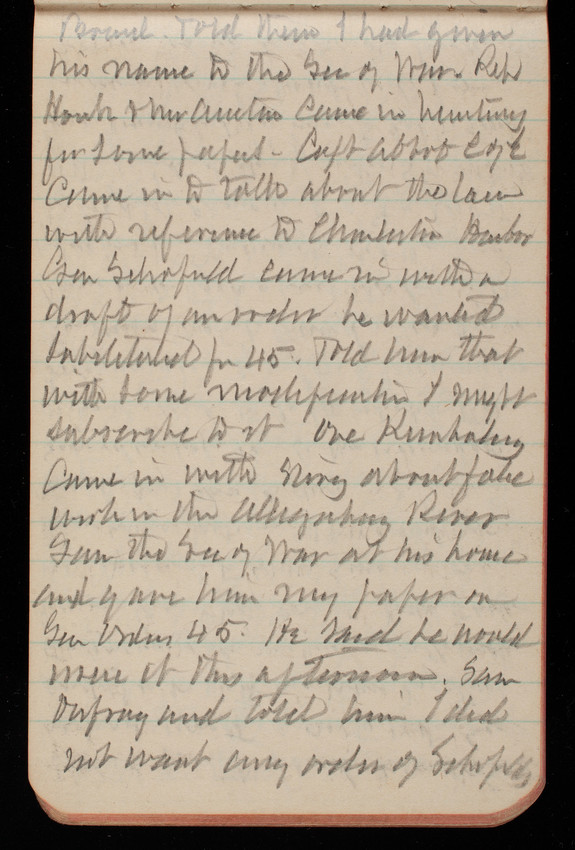 Board. Told them I had given
his name to the Sec of War. Rep
Houk & came in hunting
for some papers - Capt Abbot
came in to talk about the law
with reference to Charleston Harbor
Gen Schofield came in with a
draft of an order he wanted
substituted for 45. Told him that
with some modification I might
subscribe to it
came in with about
work in the Allegheny River
Saw the Sec of War at his home
and gave him my paper on
Gen Orders 45. He said he would
issue it this afternoon. Saw
and told him I did
not want any order of Schofields